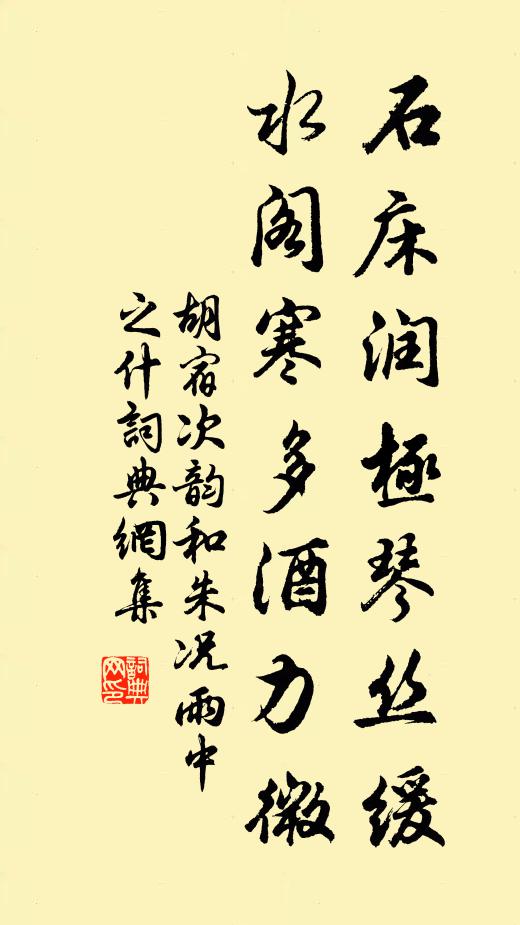 石床润極琴丝缓
水阁寒多酒力微
胡宿次韵和朱况雨中
之什詞典網集
詞典网印